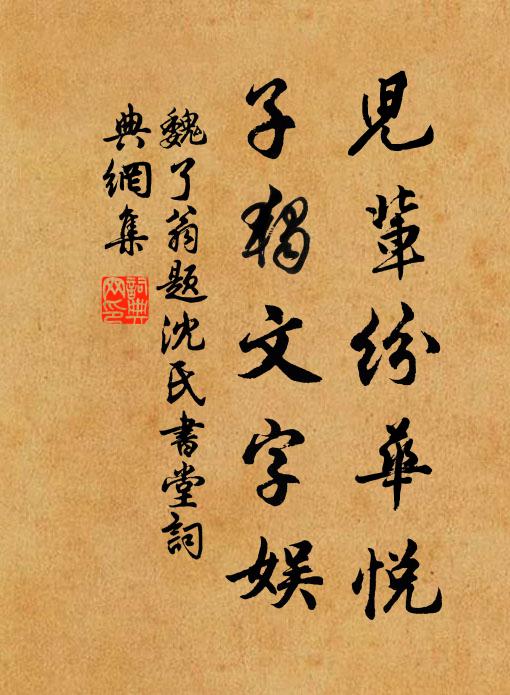 兒輩紛華悅
子獨文字娛
魏了翁題沈氏書堂詞
典網集
詞典網印